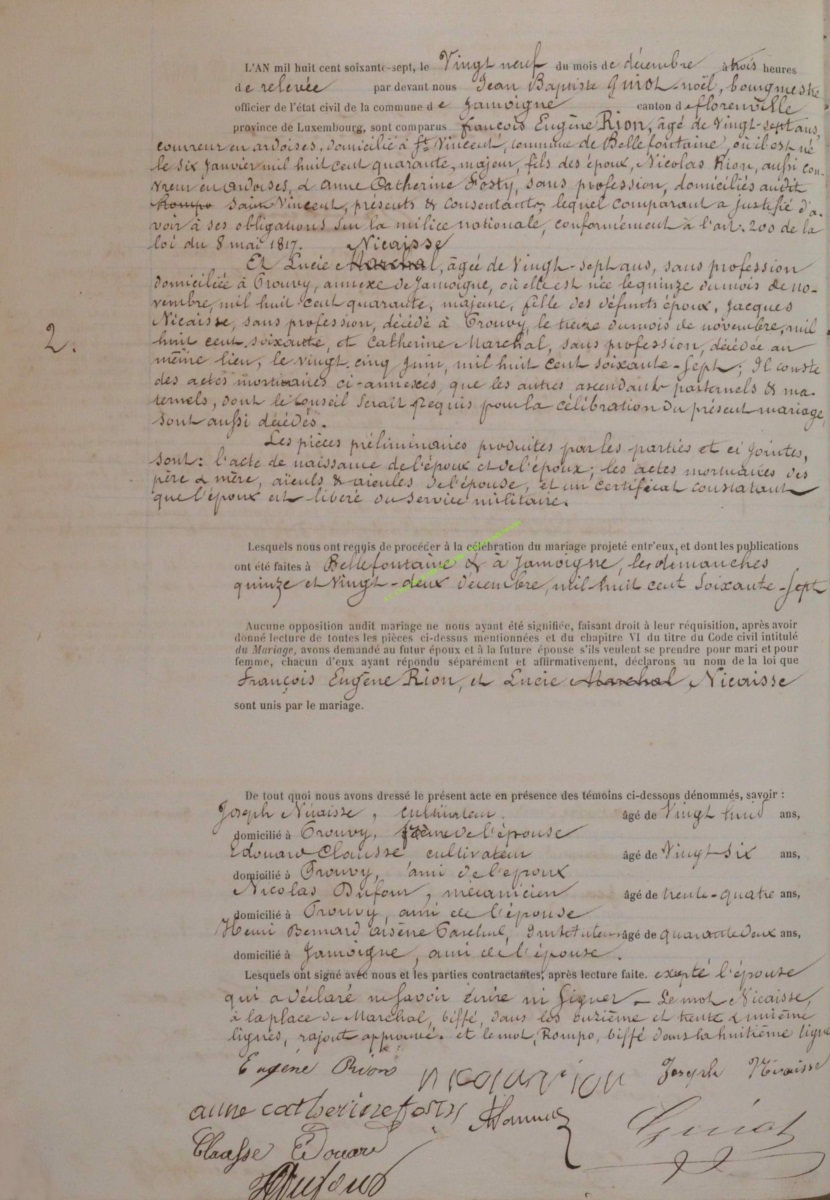 L'AN mil huit cent soixante-sept, le Vingt neuf du mois de décembre à trois heures
de relevée par devant nous Jean Baptiste Guiot-noël, bourgmestre
officier de l'état civil de la commune de Jamoigne canton de florenville
province de Luxembourg, sont comparus françois Eugène Rion, âgé de Vingt-sept ans,
couvreur en ardoises, domicilié à St Vincent, commune de Bellefontaine, où il est né
le six Janvier mil huit cent quarante, majeur, fils des époux, Nicolas Rion, aussi cou-
vreur en ardoises, & anne Catherine Fosty, sans profession, domiciliés audit
Rompo Saint Vincent, présents & consentants, lequel comparant a justifié d'a-
voir à ses obligations sur la milice nationale, conformément à l'art. 200 de la
loi du 8 mai 1817. Nicaisse
Et Lucie Marchal, âgée de Vingt-sept ans, sans profession
domiciliée à Prouvy, annexe de Jamoigne, où elle est née le quinze du mois de no-
vembre, mil huit cent quarante, majeure, fille des défunts époux, Jacques
Nicaisse, sans profession, décédé à Prouvy, le du mois de novembre, mil
2. huit cent soixante, et Catherine Marchal, sans profession, décédée au
même lieu, le vingt cinq Juin, mil huit cent soixante-sept; Il conste
des actes mortuaires ci-annexés, que les autres ascendants paternels & ma-
ternels, dont le Conseil serait requis pour la célébration du présent mariage,
sont aussi décédés.
Les pièces préliminaires produites par les parties et ci jointes,
sont: l'acte de naissance de l'époux et de l'époux; les actes mortuaires des
père & mère, aïeuls & aïeules de l'épouse, et un certificat constatant
que l'époux est libéré du service militaire.
Lesquels nous ont requis de procéder à la célébration du mariage projeté entr'eux, et dont les publications
ont été faites à Bellefontaine & à Jamoigne, les dimanches
quinze et Vingt-deux décembre, mil huit cent soixante-sept
Aucune opposition audit mariage ne nous ayant été signifiée, faisant droit à leur réquisition, après avoir
donné lecture de toutes les pièces ci-dessus mentionnées et du chapitre VI du titre du Code civil intitulé
du Mariage, avons demandé au futur époux et à la future épouse s'ils veulent se prendre pour mari et pour
femme, chacun d'eux ayant répondu séparément et affirmativement, déclarons au nom de la loi que
François Eugène Rion, et Lucie Marchal, Nicaisse
sont unis par le mariage.
De tout quoi nous avons dressé le présent acte en présence des témoins ci-dessous dénommés, savoir :
Joseph Nicaisse, cultivateur. âgé de Vingt huit ans,
domicilié à Prouvy, frère de l'épouse
Edouard Claisse, cultivateur âgé de Vingt-six ans,
domicilié à Prouvy, ami de l'époux
Nicolas Dufour, mécanicien âgé de trente-quatre ans,
domicilié à Prouvy, ami de l'épouse
Henri Bernard arsène Instituteur âgé de quarante deux ans,
domicilié à Jamoigne, ami de l'épouse.
Lesquels ont signé avec nous et les parties contractantes, après lecture faite. excepté l'épouse
qui a déclaré ne savoir écrire ni signer. Le mot Nicaisse,
à la place de Marchal, biffé, dans les onzième et trente & unième
lignes, rajout approuvé. et le mot, Rompo, biffé dans la huitième ligne
Eugène Rion nicolas rion Joseph Nicaisse
anne catherine fosty
Claisse Edouard Guiot
Dufour